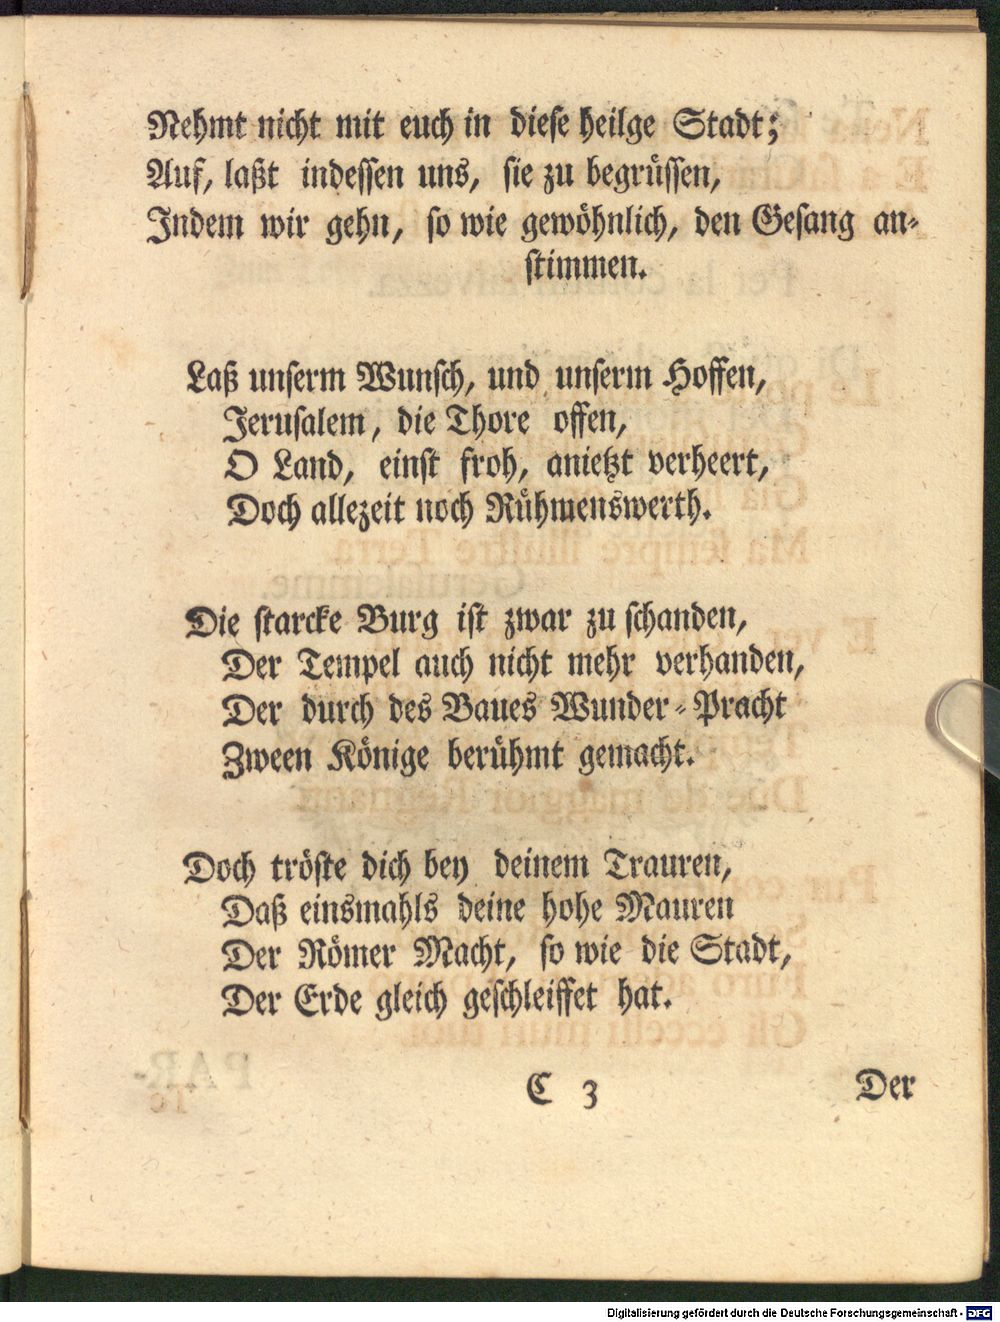 Nehmt nicht mit euch in diese heilge Stadt;
Auf, laßt indessen uns, sie zu begrüssen,
Indem wir gehn, so wie gewöhnlich, den Gesang an-
stimmen.
Laß unserm Wunsch, und unserm Hoffen,
Jerusalem, die Thore offen,
O Land, einst froh, anietzt verheert,
Doch allezeit noch Rühmenswerth.
Die starcke Burg ist zwar zu schanden,
Der Tempel auch nicht mehr verhanden,
Der durch des Baues Wunder-Pracht
Zween Könige berühmt gemacht.
Doch tröste dich bey deinem Trauren,
Daß einsmahls deine hohe Mauren
Der Römer Macht, so wie die Stadt,
Der Erde gleich geschleiffet hat.
C 3
Der
Digitalisierung gefördert durch die Deutsche Forschungsgemeinschaft - DFG